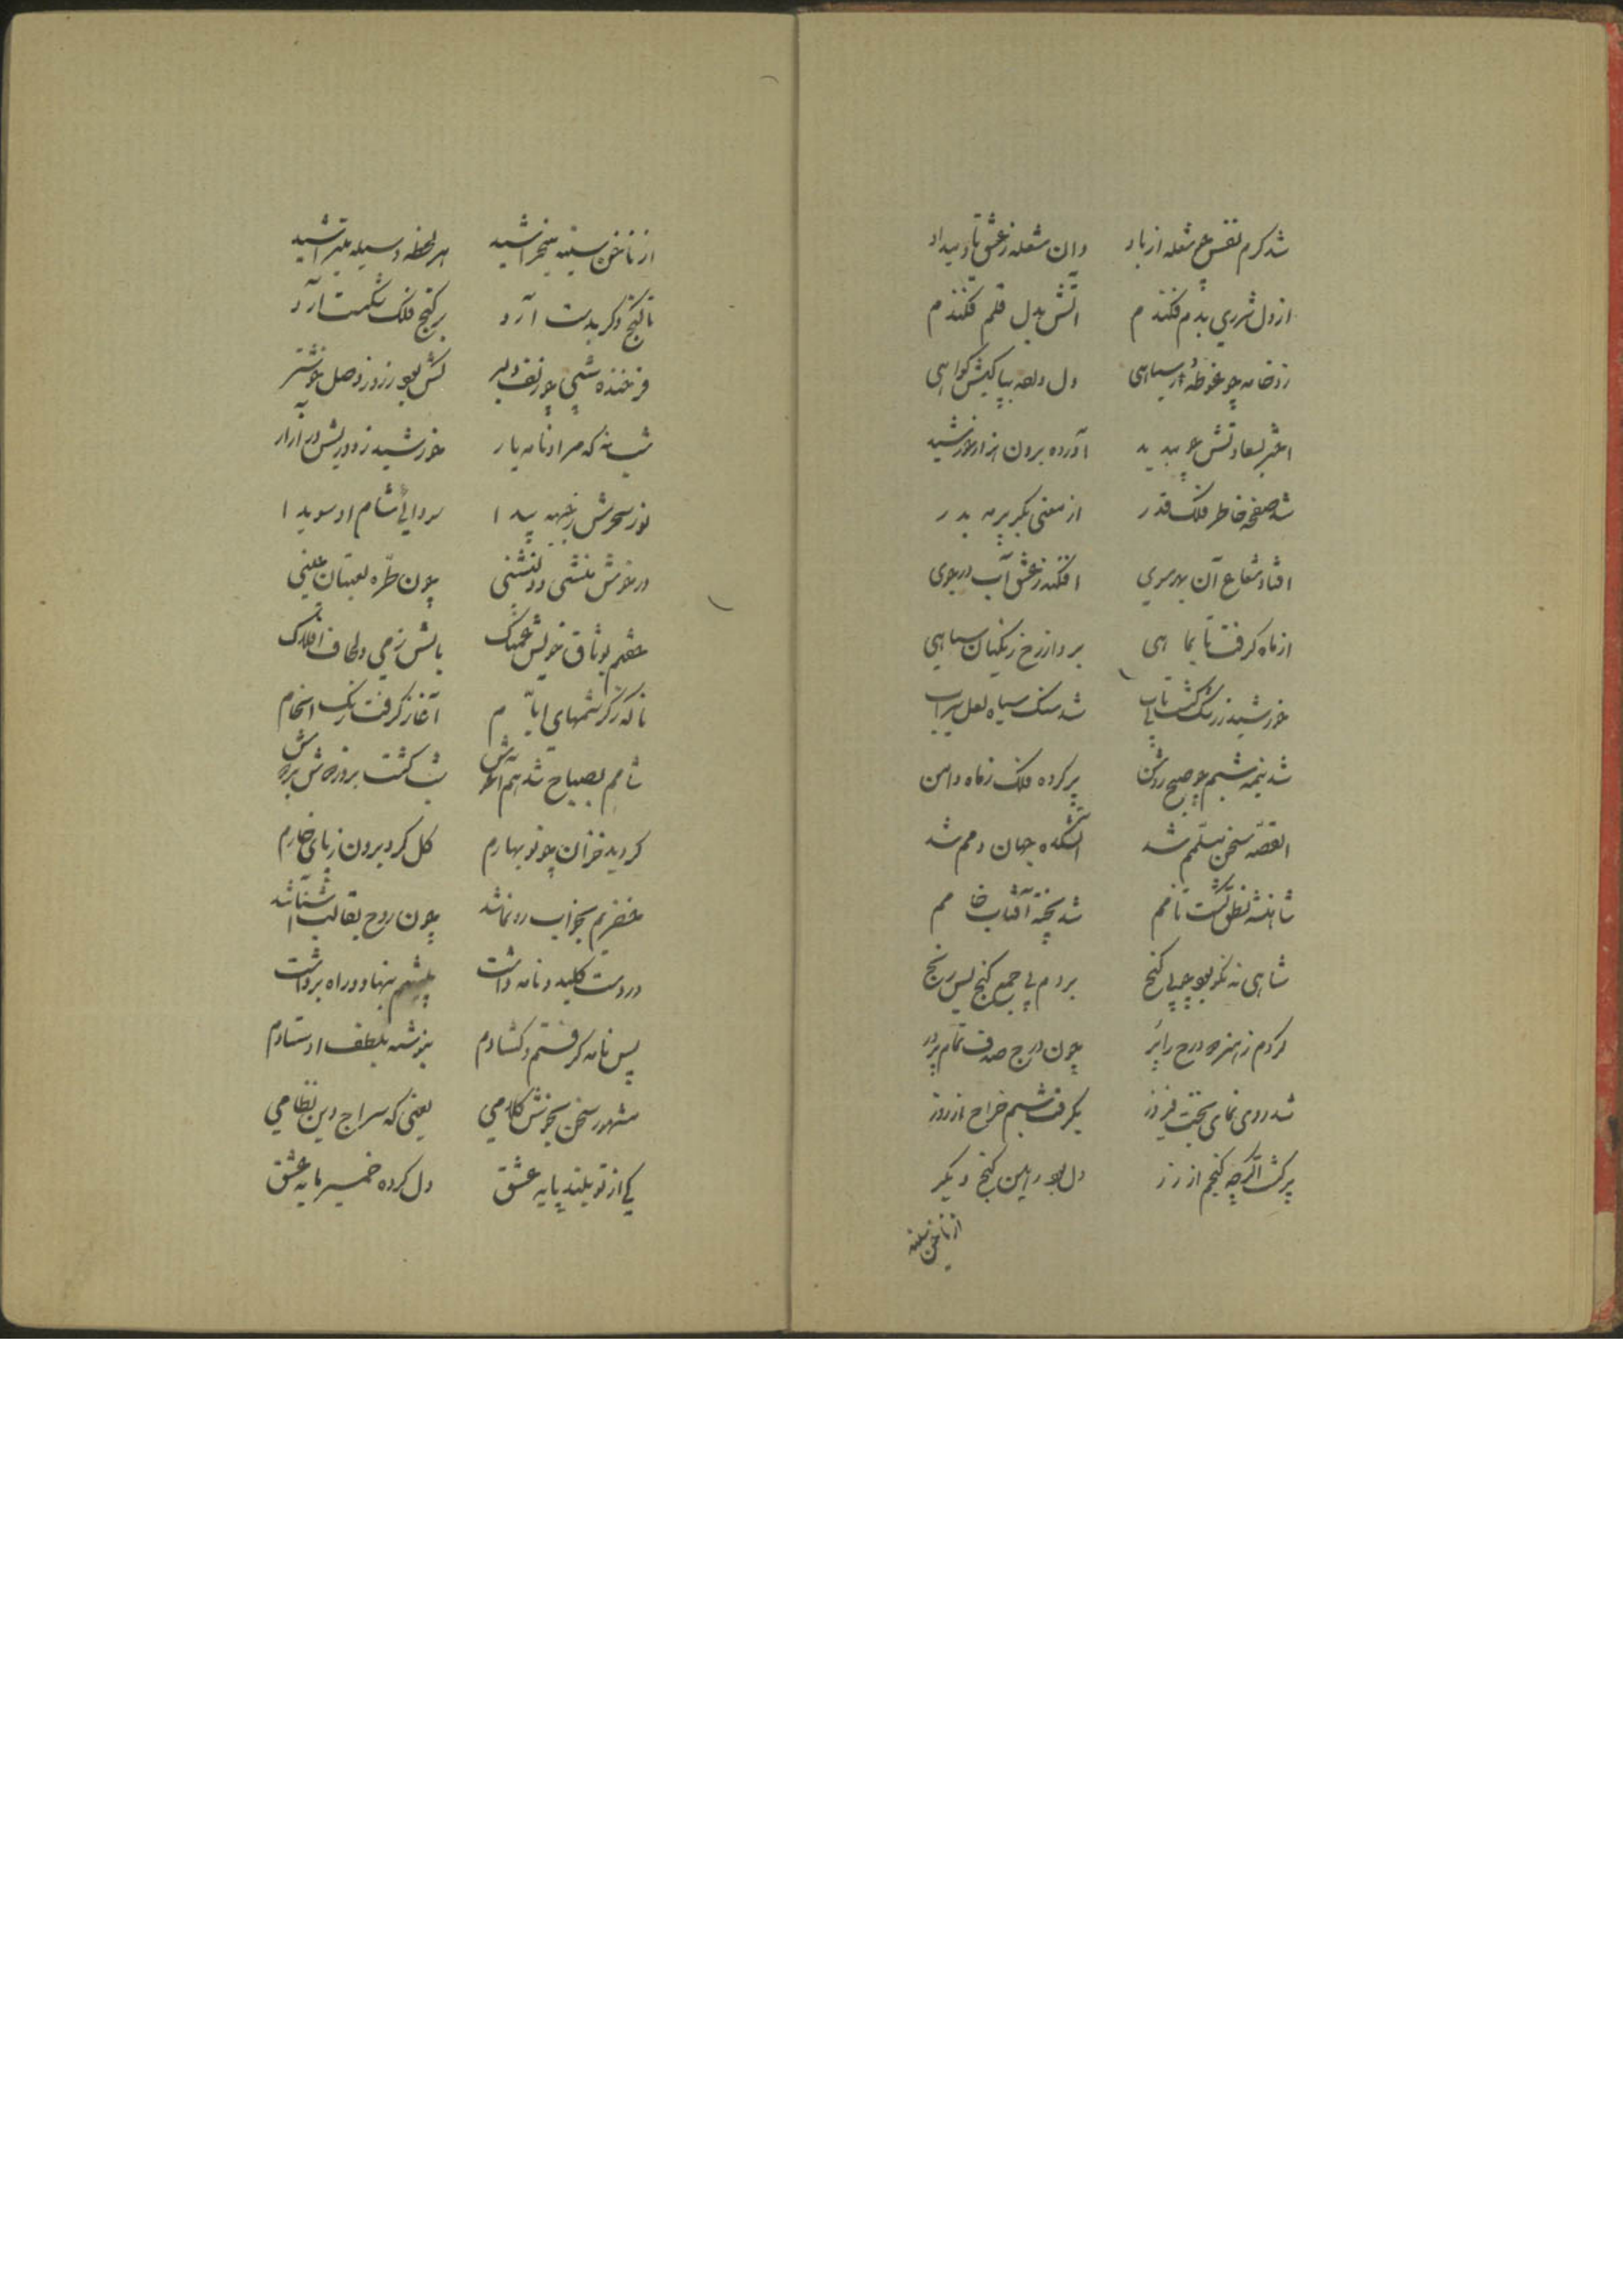 شد کرم نفس چو شعله از باد وان شعله ز عشق تاو میداد
از دل شرری بدم فکندم آتش بدل قلم فکندم
زد خامه چو غوطه در سیاهی دل داده بپاکیش کواهی
اختر بسعادتش چو بدید آورده برون هزار خورشید
شد صفحه خاطر فلک قدر از معنی بکر پر مه بدر
افتاد شعاع آن بهر سوی افکند ز عشق آب در جوی
از ماه کرفت تا بماهی برد از رخ زنکیان سیاهی
خورشید ز رنک شب شد سنک سیاه لعل سیراب
شد نیمه شبم چو صبح روشن پر کرده فلک ز ماه دامن
القصه سخن مسلمم شد آتشکده جهان دمم شد
شاهنشه نطق کشت نامم شد پخته آفتاب خامم
شاهی نه نکو بود چو بی کنج بردم پی جمع کنج بس رنج
کردم ز هنر چو درج را پر چون درج صدف تمام پر در
شد روی نمای بخت فیروز بکرفت شبم خراج از روز
پر کشت اکرچه کنجم از زر دل بود رهین کنج دیکر
از ناخن سینه
از ناخن سینه میخراشید هر لحظه وسیله میتراشید
تا کنج دکر بدست آرد بر کنج فلک شکست آرد
فرخنده شبی چو زلف دلبر کش بود ز روز وصل خوشتر
شبانه که مراد نامه یار خورشید ز دوریش در آزار
نور سحرش ز جبهه پیدا سودای شام او سویدا
در خوش منشی و دلنشینی چون طره لعبتان چینی
خفتم بوثاق خویش غمناک بالش ز می و لحاف افلاک
ناکه ز کرشمهای ایام آغاز کرفت رنک انجام
شامم بصباح شد هم آغوش شب کشت بروز دوش بر دوش
کردید خزان چو نوبهارم کل کرد برون ز پای خارم
خضرم بخواب رونما شد چون روح بقالب آشنا شد
در دست کلید و نامه داشت پیشم بنهاد و راه برداشت
پس نامه کرفتم و کشادم بنوشته بلطف اوستادم
مشهور سخن بخوش کلامی یعنی که سراج دین نظامی
کی از تو بلند پایه عشق دل کرده خمیر مایه عشق